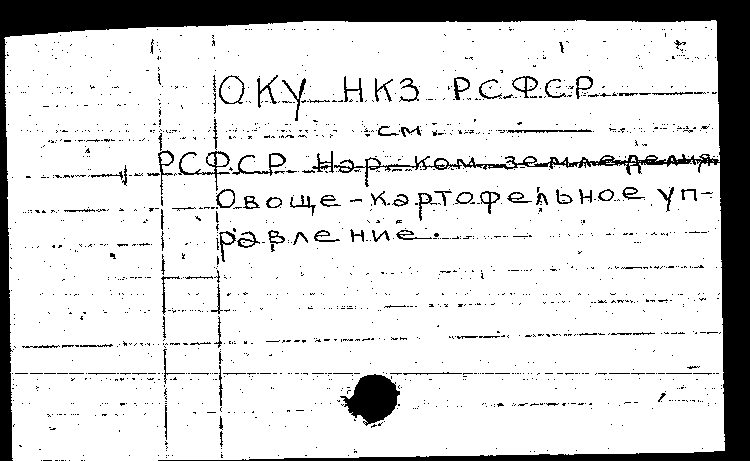 ОКУ НКЗ РСФСР.
см.
РСФСР. Нар-ком. земледелия.
Овоще-картофельное уп-
равление.